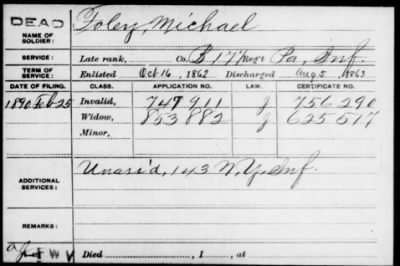 DEAD
NAME OF SOLDIER: Foley, Michael
SERVICE: Late rank, Co. B 177 Reg't Pa, Inf.
TERM OF SERVICE: Enlisted Oct 16, 1862 Discharged Aug 5, 1863
DATE OF FILING. CLASS. APPLICATION NO. LAW. CERTIFICATE NO.
1890 Feb 25 Invalid, 747911 J 756290
Widow, 853882 J 625517
Minor,
ADDITIONAL SERVICES: Unass'd, 143 N.Y. Inf.
REMARKS:
F W V
Died , 1 , at